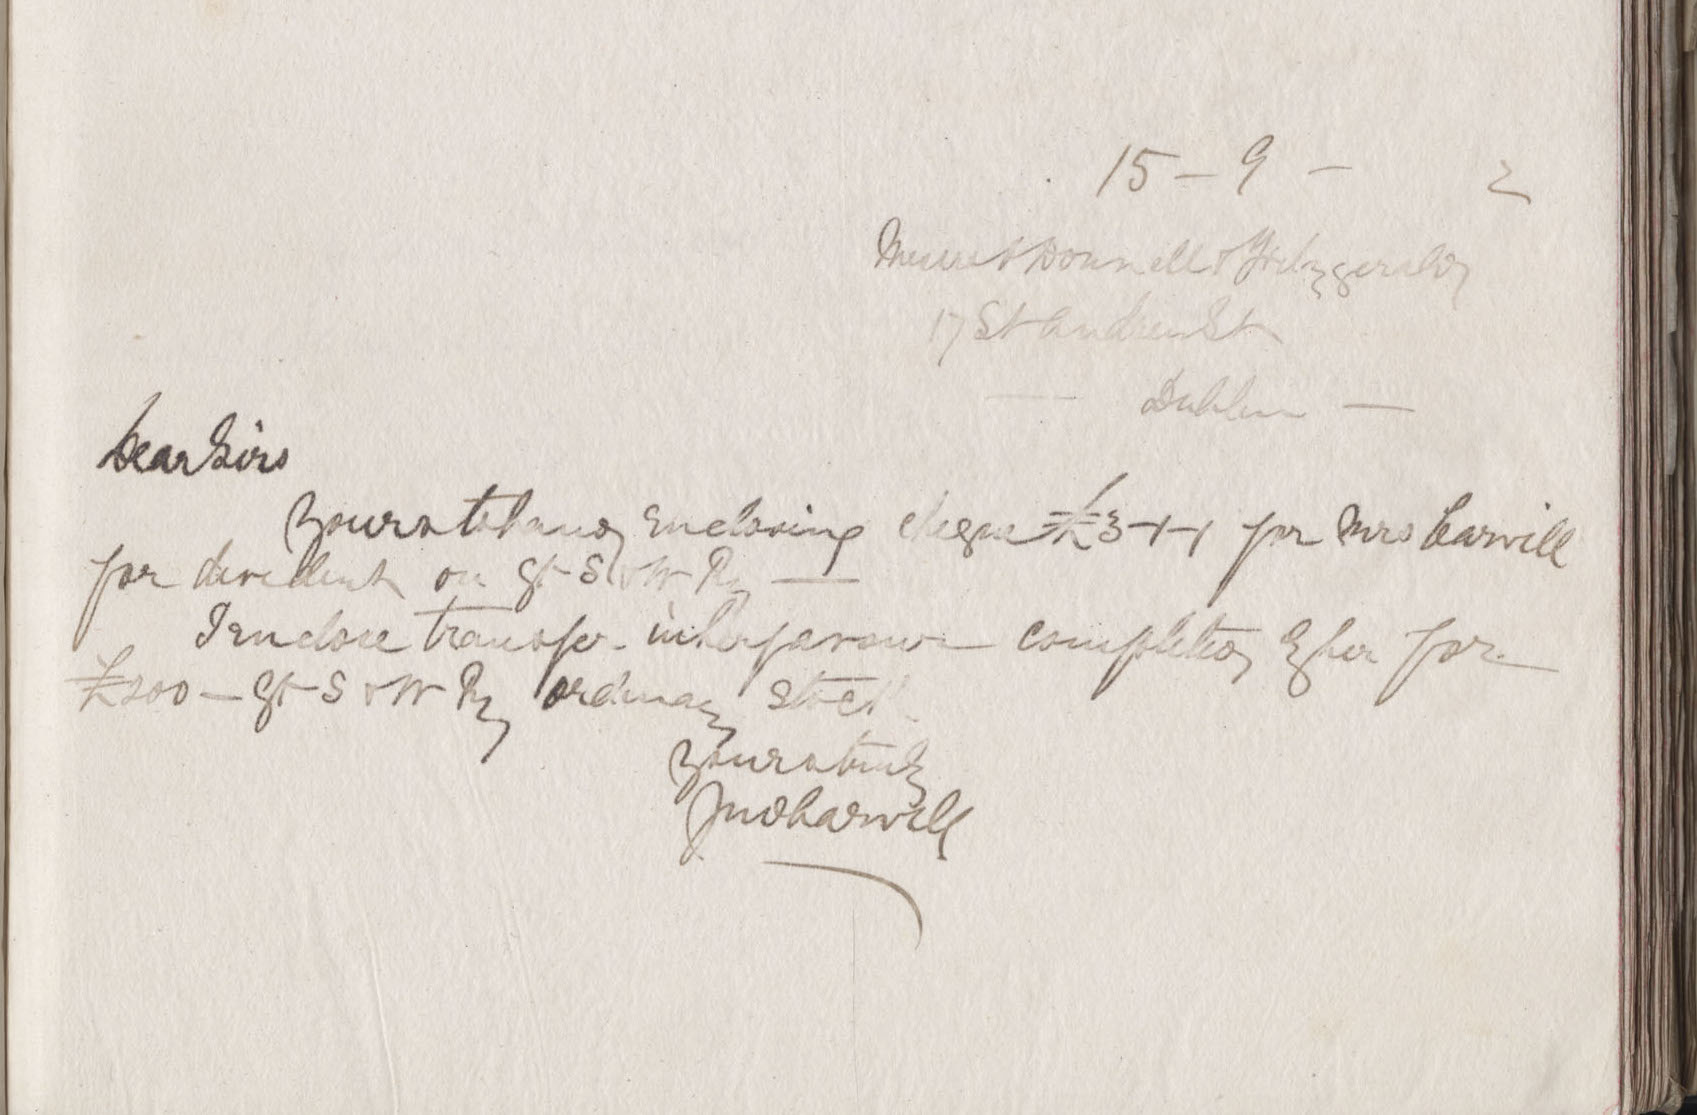 15 - 9 - 2
Messrs O'Donnell & Fitzgerald
17 St Andrew St
— Dublin —
Dear Sirs
Yours to hand enclosing cheque £3-1-1 for Mrs Carvill
for dividend on Gt S & W Ry —
I enclose transfer in her favour completed by her for
£200 - Gt S & W Ry ordinary stock
Yours truly
Jno Carvill